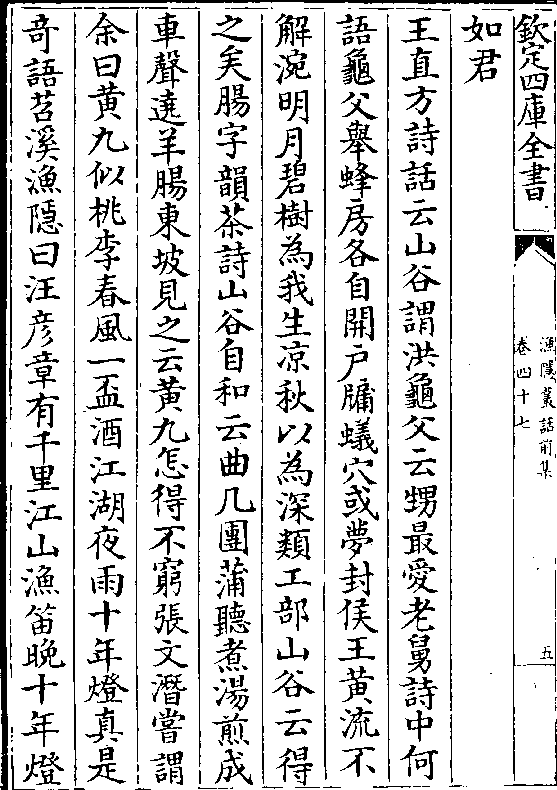 欽定四庫全書
漁隱叢話前集
卷四十七
五
如君
王直方詩話云山谷謂洪龜父云甥最愛老舅詩中何
語龜父舉蜂房各自開戶牖蟻穴或夢封侯王黄流不
解涴明月碧樹為我生凉秋以為深類工部山谷云得
之矣腸字韻茶詩山谷自和云曲几團蒲聽煮湯煎成
車聲遶羊腸東坡見之云黄九怎得不窮張文潛嘗謂
余曰黄九似桃李春風一盃酒江湖夜雨十年燈真是
竒語苕溪漁隱曰汪彦章有千里江山漁笛晚十年燈